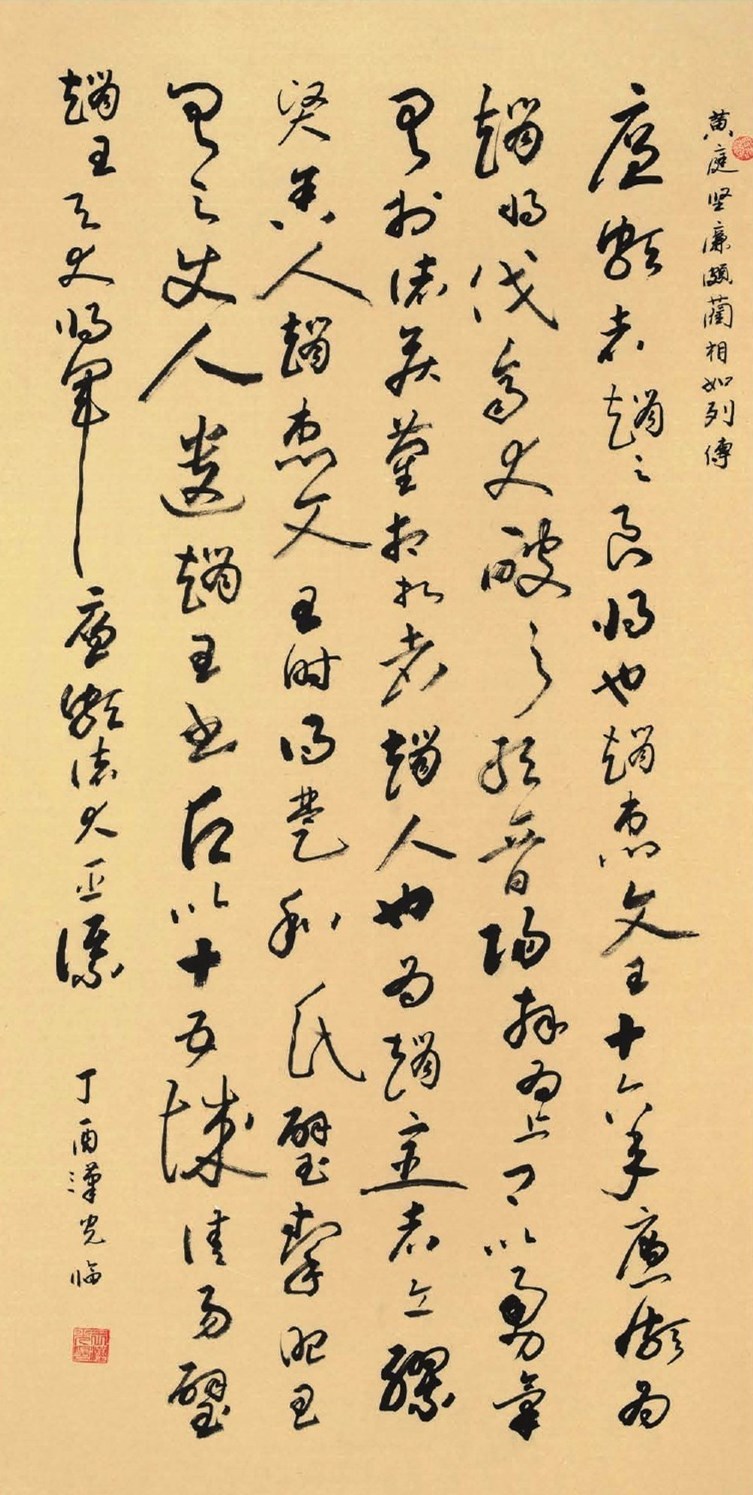 黄庭坚廉頗藺相如列傳
廉頗者趙之良將也趙惠文王十六年廉頗為
趙將伐齊大破之取晉陽拜為上卿以勇氣
聞於諸侯藺相如者趙人也為趙宦者令繆
賢舍人趙惠文王時得楚和氏璧秦昭王
聞之使人遺趙王書願以十五城請易璧
趙王與大將軍廉頗諸大臣謀
丁酉漢光临